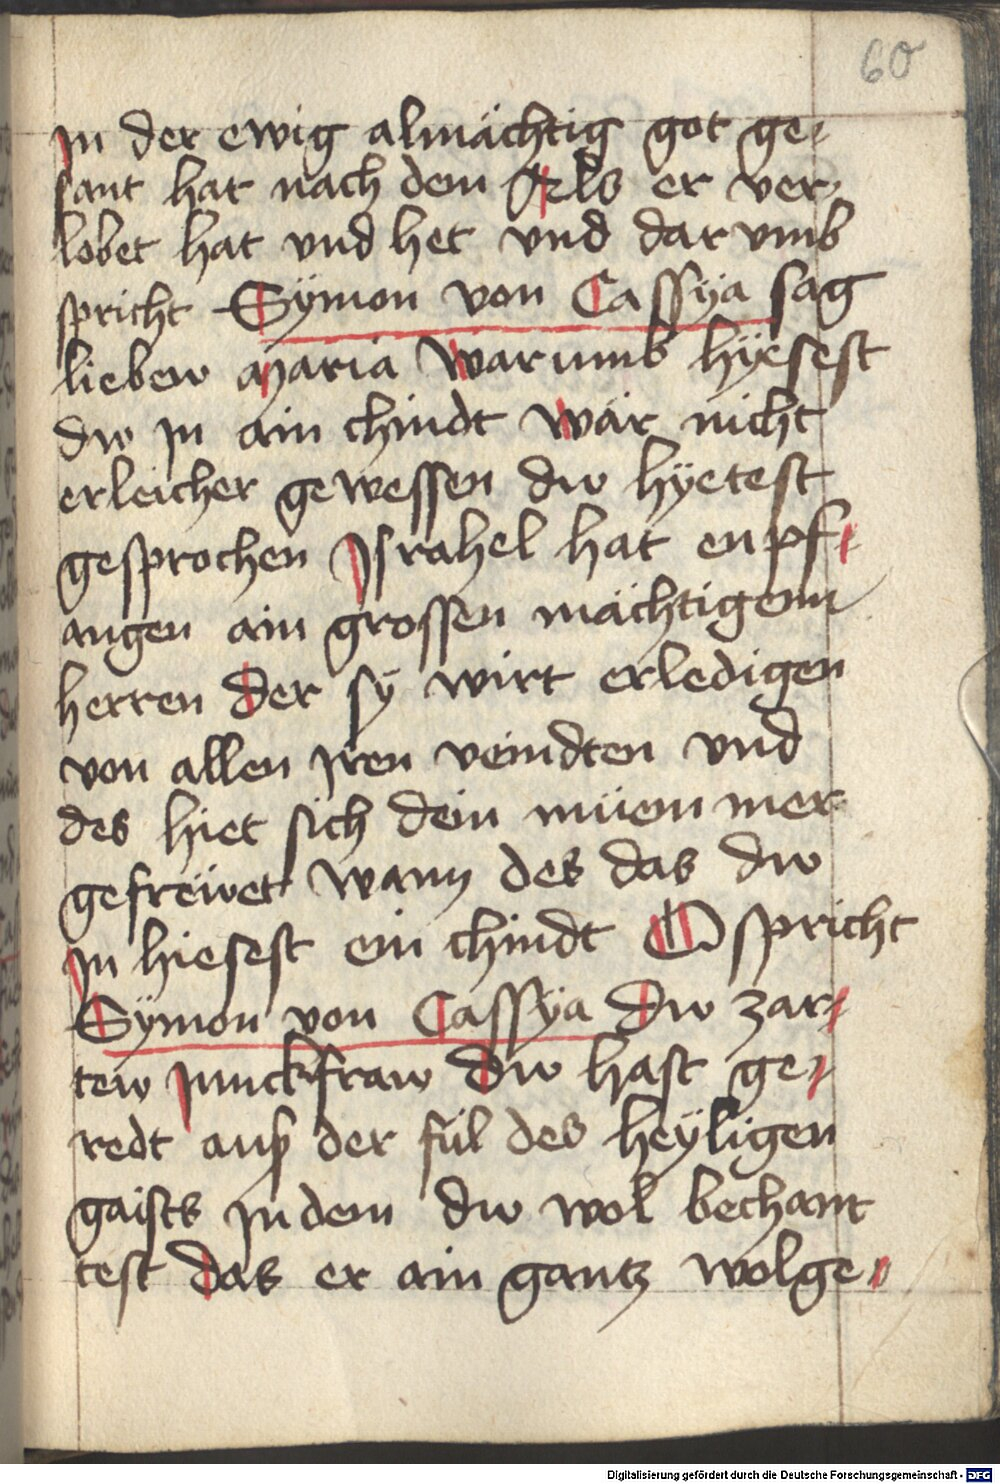 60
in der ewig almächtig got ge-
sant hat nach dem Als er ver-
lobet hat vnd het vnd dar vmb
spricht Sÿmon von Cassÿa sag
liebew maria warumb hÿesest
dw in ain chindt wär nicht
erleicher gewessen dw hÿetest
gesprochen Israhel hat enpf-
angen ain grossen mächtigenn
herren der sÿ wirt erledigen
von allen iren veindten vnd
des hiet sich dein müem mer
gefrëwet wann des das dw
in hiesest ein chindt O spricht
Sÿmon von Cassÿa Dw zar-
tew junckfraw dw hast ge-
redt auß der fül des heÿligen
gaists in dem dw wol bechant
test das er ain gantz wolge-
Digitalisierung gefördert durch die Deutsche Forschungsgemeinschaft - DFG